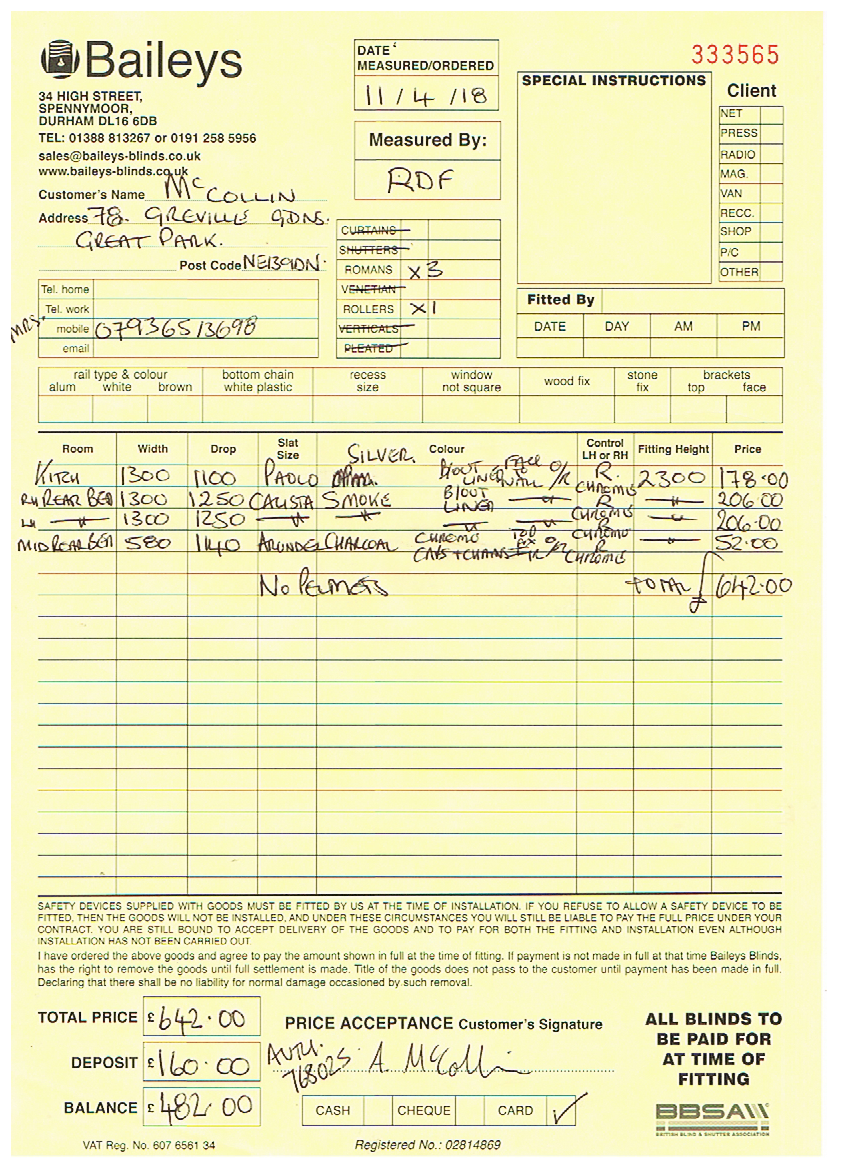 Baileys
34 HIGH STREET,
SPENNYMOOR,
DURHAM DL16 6DB
TEL: 01388 813267 or 0191 258 5956
sales@baileys-blinds.co.uk
www.baileys-blinds.co.uk
Customer's Name McCOLLIN
Address 78. GREVILLE GDNS.
GREAT PARK.
Post Code NE139DN.
Tel. home
Tel. work
MRS. mobile 07936513698
email
DATE MEASURED/ORDERED
11/4/18
Measured By:
RDF
CURTAINS
SHUTTERS
ROMANS X3
VENETIAN
ROLLERS X1
VERTICALS
PLEATED
333565
SPECIAL INSTRUCTIONS
Client
NET
PRESS
RADIO
MAG.
VAN
RECC.
SHOP
P/C
OTHER
Fitted By
DATE DAY AM PM
rail type & colour
alum white brown
bottom chain white plastic
recess size
window not square
wood fix
stone fix
brackets
top face
Room Width Drop Slat Size Colour Control LH or RH Fitting Height Price
KITCH 1300 1100 PAOLO SILVER. B/OUT LINER FACE TO WALL O/R R. CHROME 2300 178.00
RH REAR BED 1300 1250 CALISTA SMOKE B/OUT LINER " R CHROME " 206.00
LH " 1300 1250 " " " " R CHROME " 206.00
MID REAR BED 580 1140 ARUNDEL CHARCOAL CHROME CAPS + CHAINS TOP FIX O/R R CHROME " 52.00
NO PELMETS TOTAL £642.00
SAFETY DEVICES SUPPLIED WITH GOODS MUST BE FITTED BY US AT THE TIME OF INSTALLATION. IF YOU REFUSE TO ALLOW A SAFETY DEVICE TO BE
FITTED, THEN THE GOODS WILL NOT BE INSTALLED, AND UNDER THESE CIRCUMSTANCES YOU WILL STILL BE LIABLE TO PAY THE FULL PRICE UNDER YOUR
CONTRACT. YOU ARE STILL BOUND TO ACCEPT DELIVERY OF THE GOODS AND TO PAY FOR BOTH THE FITTING AND INSTALLATION EVEN ALTHOUGH
INSTALLATION HAS NOT BEEN CARRIED OUT.
I have ordered the above goods and agree to pay the amount shown in full at the time of fitting. If payment is not made in full at that time Baileys Blinds,
has the right to remove the goods until full settlement is made. Title of the goods does not pass to the customer until payment has been made in full.
Declaring that there shall be no liability for normal damage occasioned by such removal.
TOTAL PRICE £642.00
DEPOSIT £160.00
BALANCE £482.00
PRICE ACCEPTANCE Customer's Signature
AUTH. 768025 A. McCollin
CASH CHEQUE CARD ✓
ALL BLINDS TO
BE PAID FOR
AT TIME OF
FITTING
BBSA
BRITISH BLIND & SHUTTER ASSOCIATION
VAT Reg. No. 607 6561 34
Registered No.: 02814869